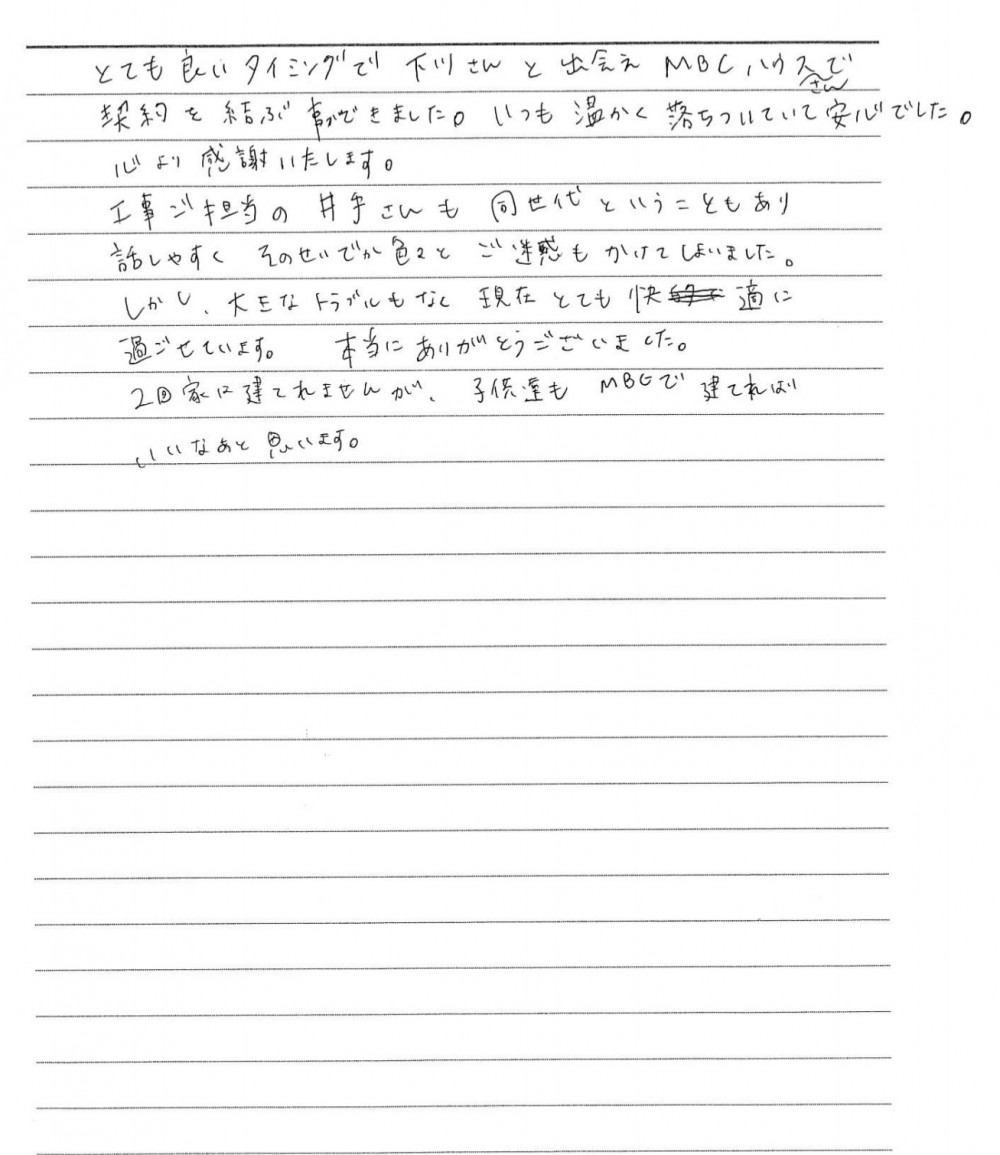 とても良いタイミングで 下川さんと出会え MBCハウスさんで
契約を結ぶ事ができました。いつも温かく落ちついていて安心でした。
心より感謝いたします。
工事ご担当の井手さんも 同世代ということもあり
話しやすく そのせいでか色々と ご迷惑もかけてしまいました。
しかし、大きなトラブルもなく 現在とても快適に
過ごせています。 本当にありがとうございました。
2回家は建てれませんが、子供達も MBCで 建てれば
いいなあと思います。